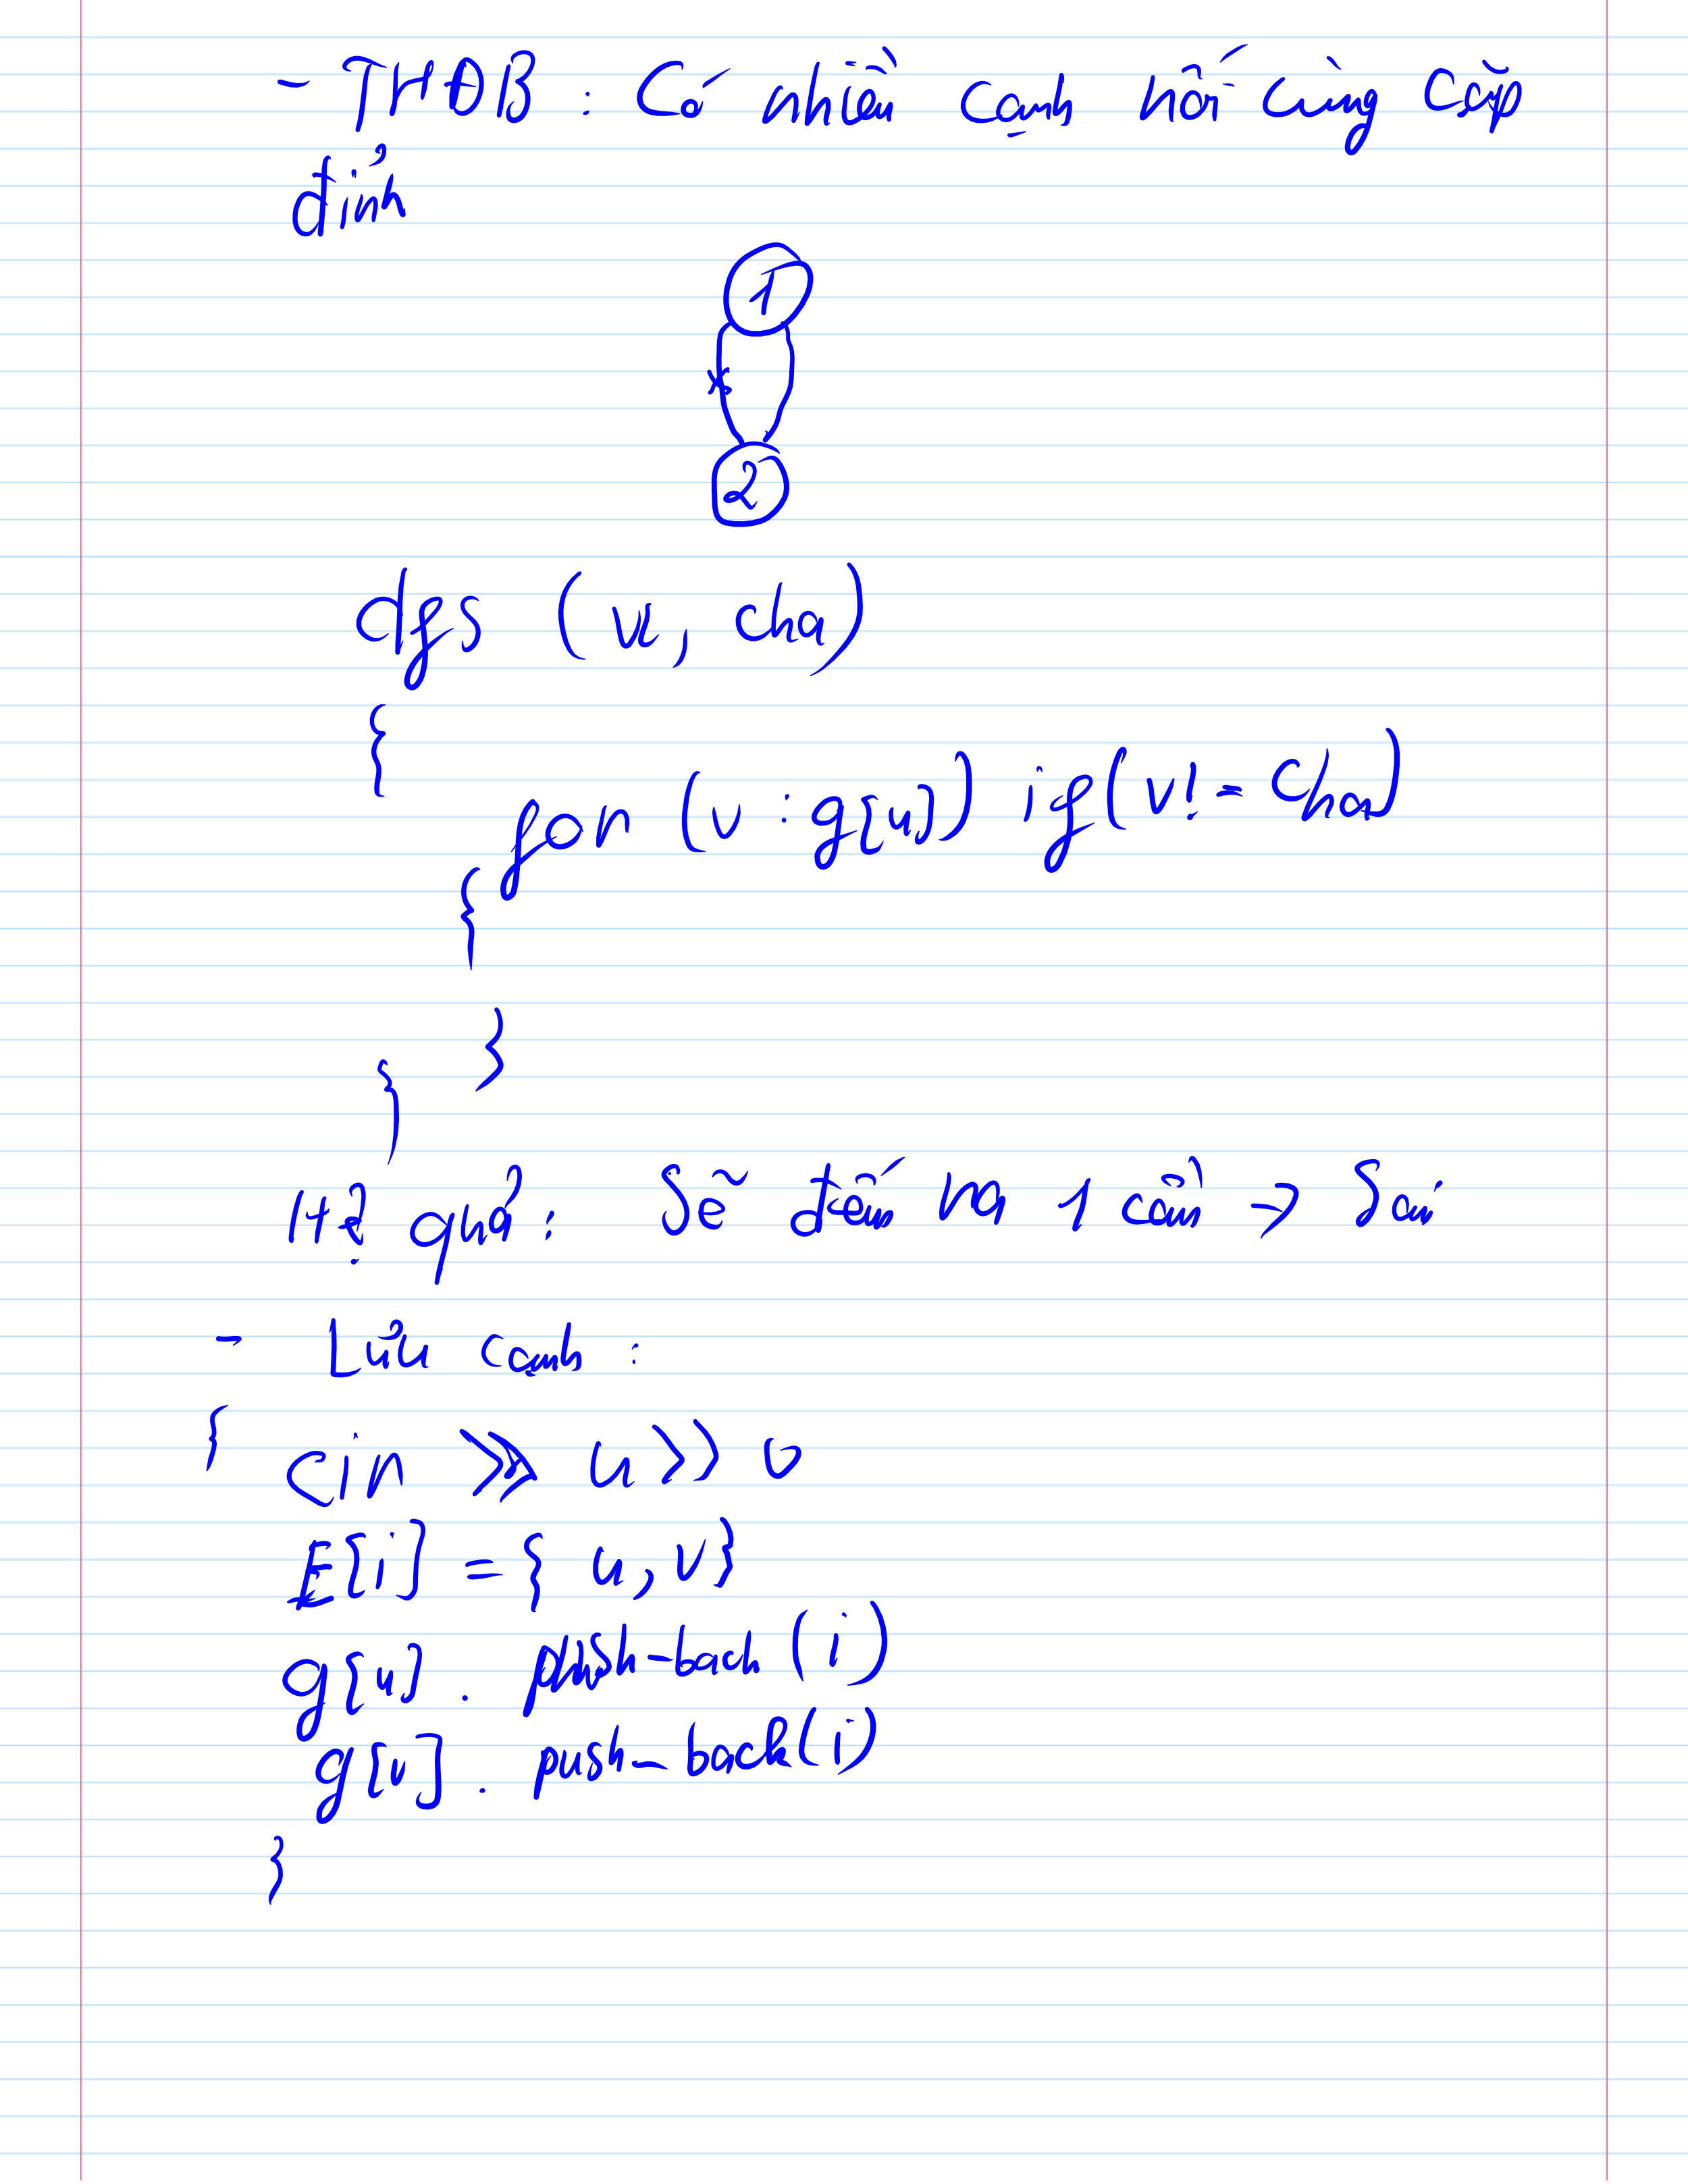 - THĐB : Có nhiều cạnh nối cùng cặp
đỉnh
1
2
dfs (u, cha)
{
for (v : g[u]) if (v != cha)
{
}
}
Hệ quả : Sẽ đếm ra 1 cầu -> Sai
- Lưu cạnh :
{
cin >> u >> v
E[i] = { u, v}
g[u] . push-back (i)
g[v] . push-back (i)
}